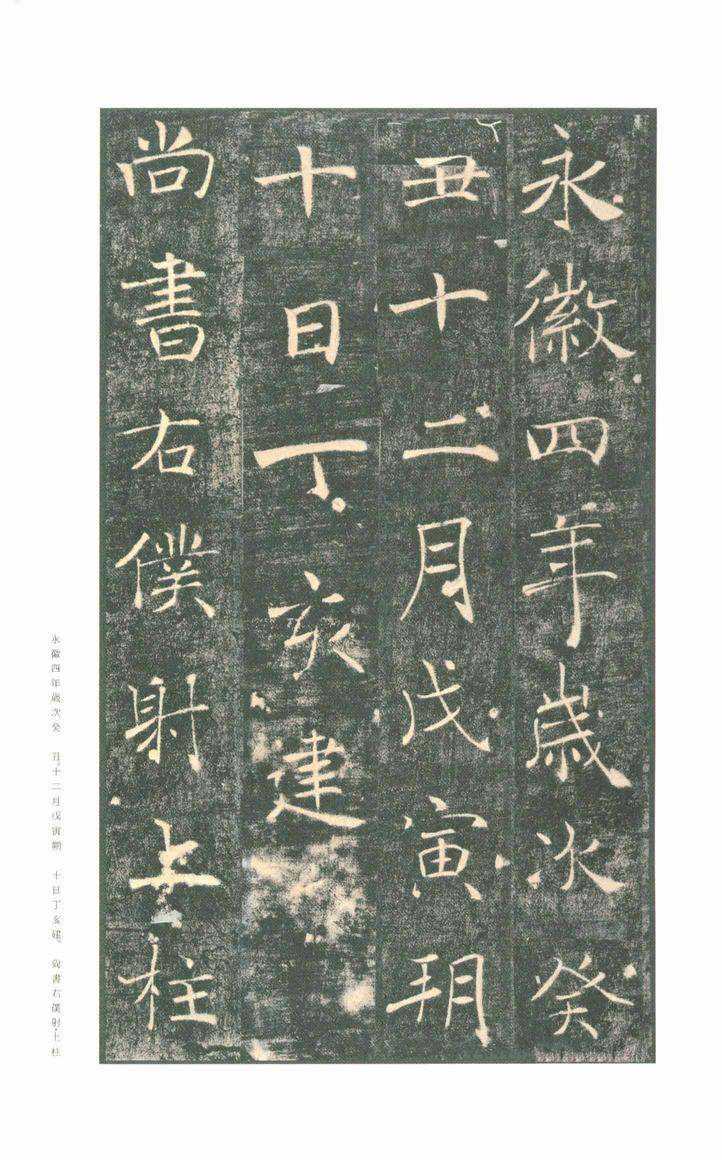 永徽四年歲次癸
丑十二月戊寅朔
十日丁亥建
尚書右僕射上柱
永徽四年歲次癸 丑。十二月戊寅朔 十日丁亥建。 尙書右僕射上柱